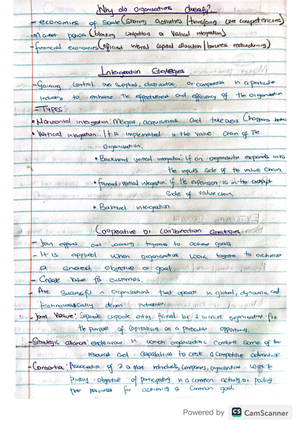 Why do organisations diversify?
- economies of scope (sharing activities / transferring core competencies)
- Market power (blocking competitors or vertical integration)
- financial economies (efficient internal capital allocation / business restructuring)
Integration Strategies
- Gaining control over suppliers, distributors or competitors in a particular
industry to enhance the effectiveness and efficiency of the organisation
- TYPES:
• Horizontal integration: Mergers, acquisitions and takeovers (happens
• Vertical integration: It is implemented in the value chain of the
organisation.
• Backward vertical integration: If an organisation expands into
the inputs side of the value chain.
• Forward vertical integration: If the expansion is in the output
side of value chain.
• Balanced integration
Cooperative or combination strategies
- Join efforts and working together to achieve goals.
- It is applied when organisations work together to achieve
a shared objective or goal.
- Create value for customers.
- Are successful in organisations that operate in global, dynamic and
technologically driven industries.
- Joint Venture: Separate corporate entity formed by 2 or more organisations for
the purpose of capitalising on a particular opportunity.
- Strategic alliances: in which organisations combine some of their
resources and capabilities to create a competitive advantage
- Consortia: Association of 2 or more individuals, companies, organisations
objective of participating in a common activity or pooling
their resources for achieving a common goal.
Powered by CS CamScanner